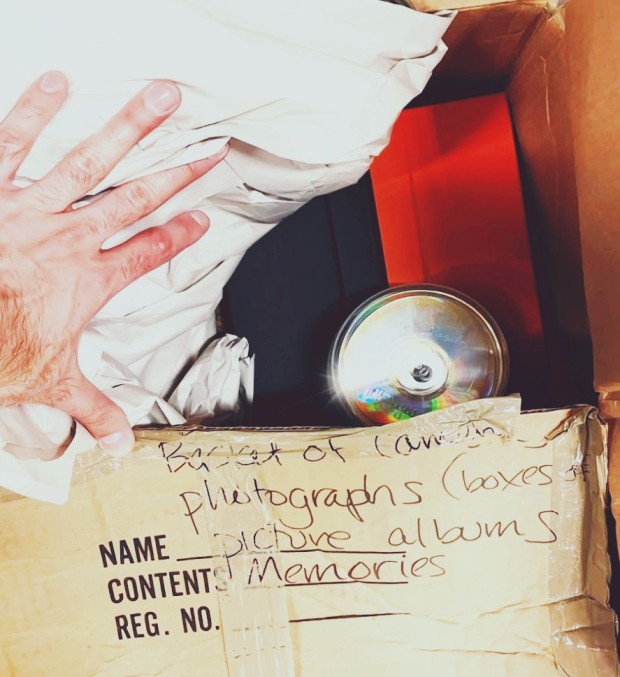 Basket of
photographs (boxes of
NAME picture albums
CONTENTS Memories
REG. NO.